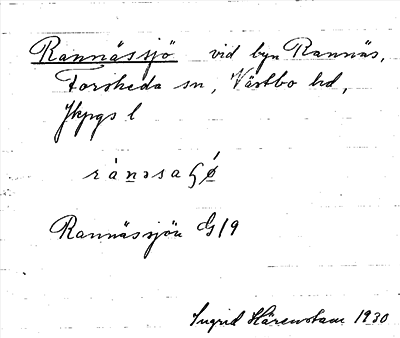 Rannässjö vid byn Rannäs,
Forsheda sn, Västbo hd,
Jkpgs l
Rannässjön G 19
Ingrid Härenstam 1930